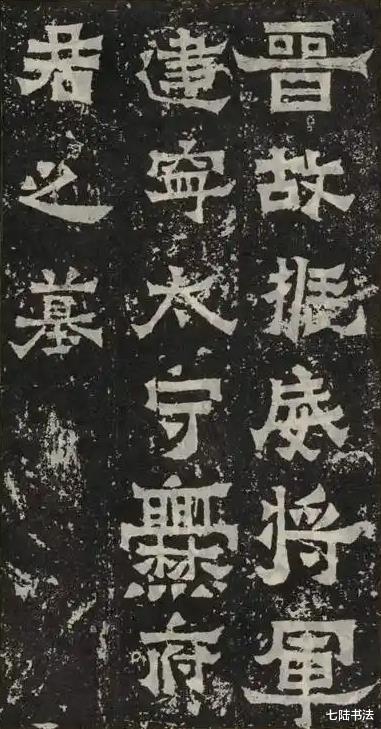 晋故振威将軍
建寧太守爨府
君之墓
七陆书法